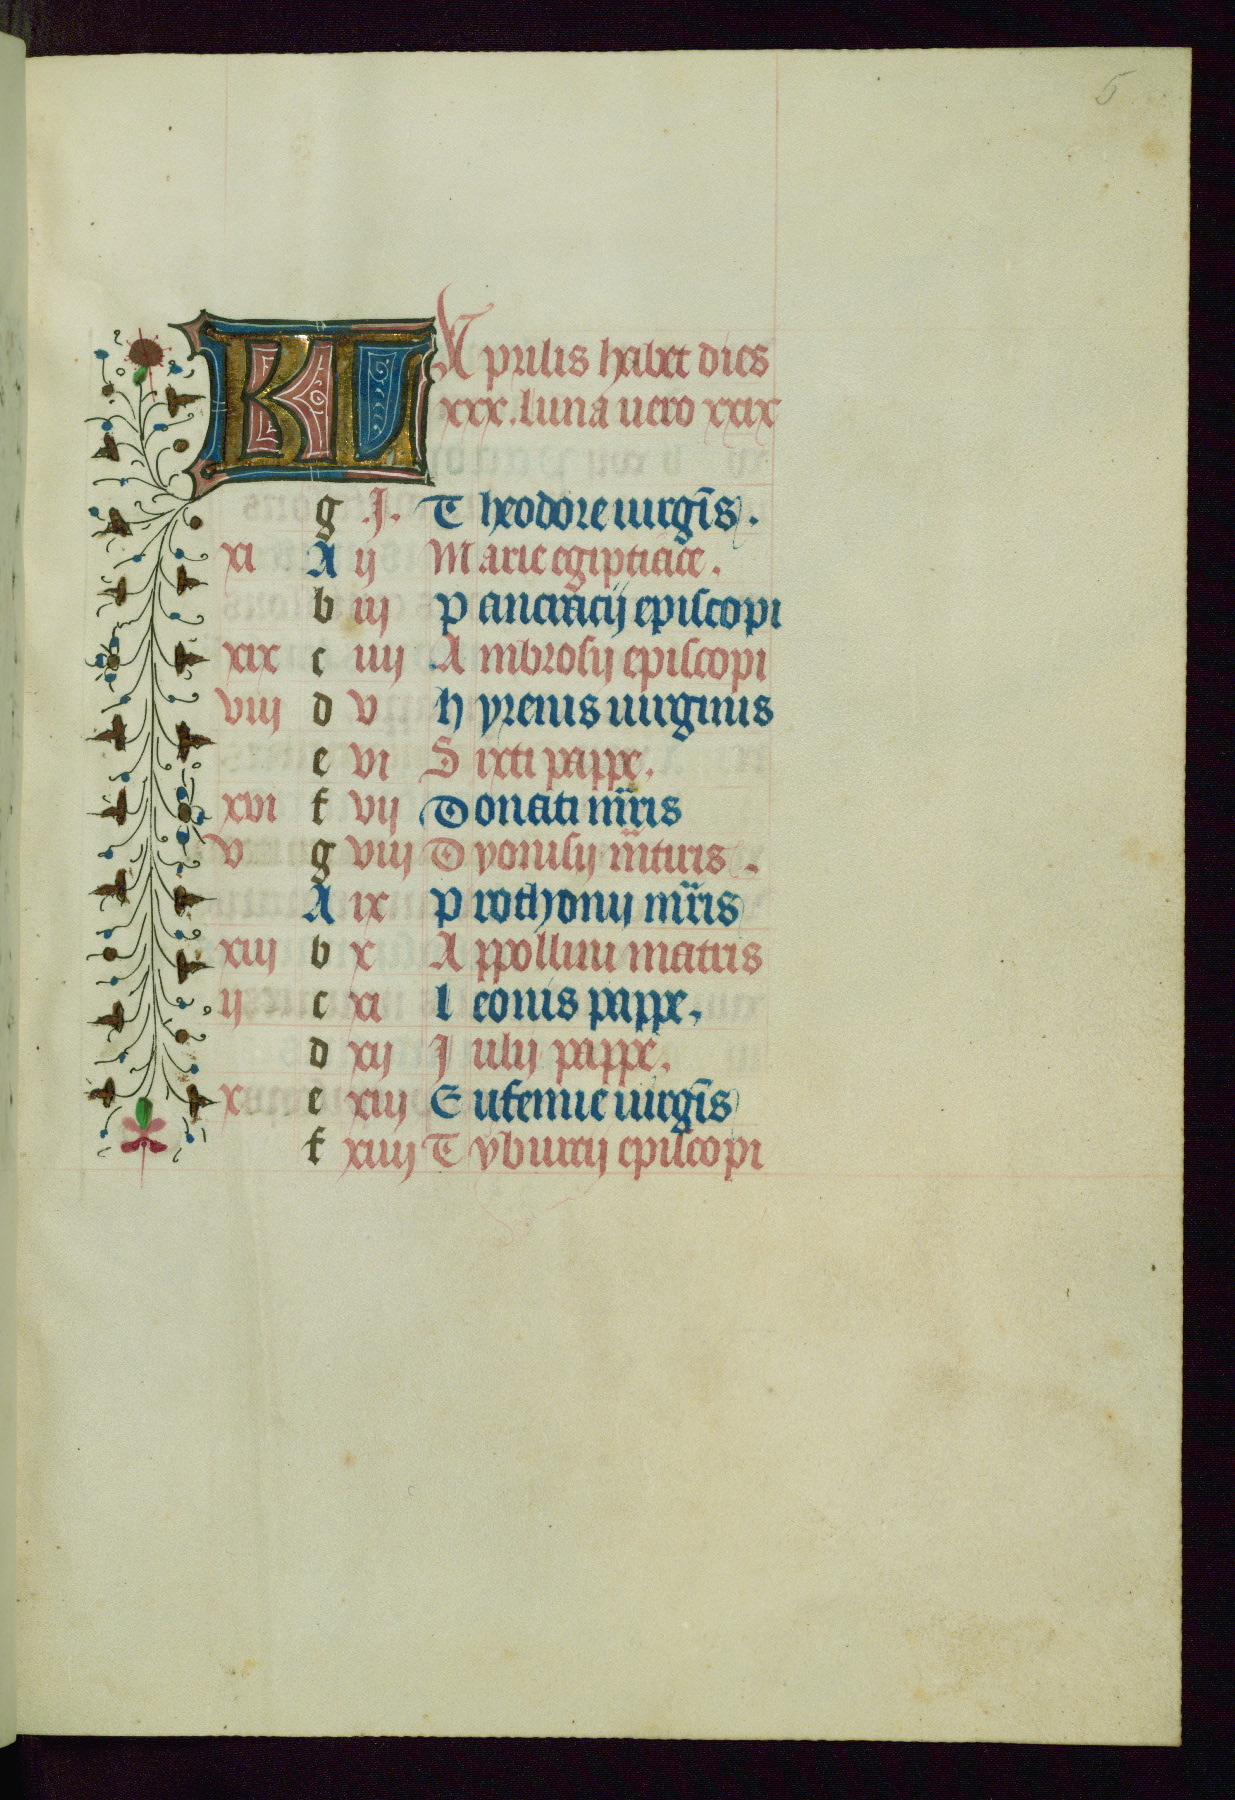 5
KL Aprilis habet dies
xxx. luna uero xxix
g .J. Theodore uirgīs.
xi A ij Marie egiptiace.
b iij Pancracij episcopi
xix c iiij Ambrosij episcopi
viij d v hyrenis uirginis
e vi Sixti pappe.
xvi f vij Donati mr̄is
v g viij Dyonisij mr̄tiris.
A ix Prothonij mr̄is
xiij b x Appollini matiris
ij c xi leonis pappe.
d xij Julij pappe.
x e xiij Eufemie uirgīs
f xiiij Tyburcij episcopi